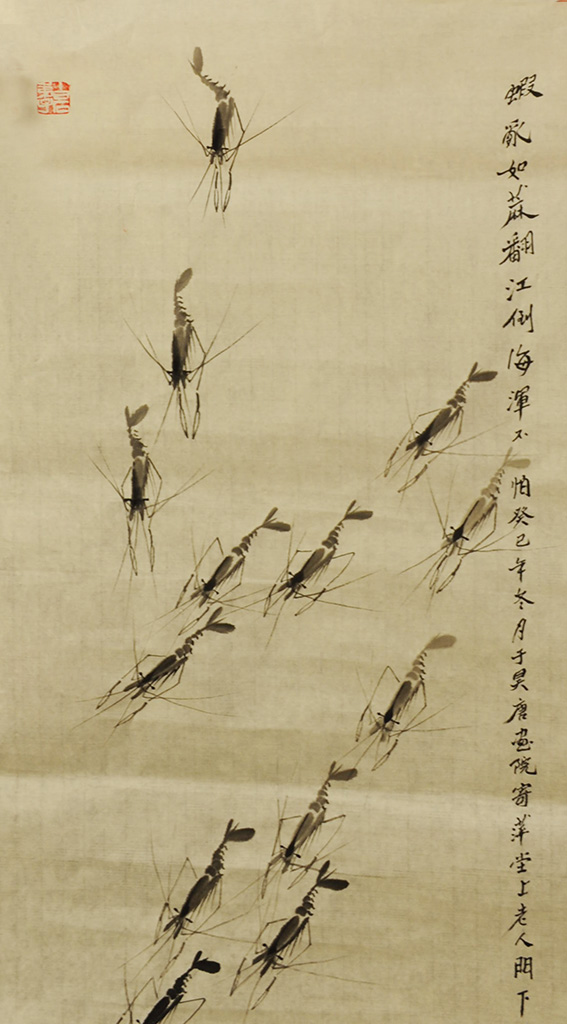 蝦亂如蔴翻江倒海渾不怕癸巳年冬月于昊唐画院寄萍堂上老人門下